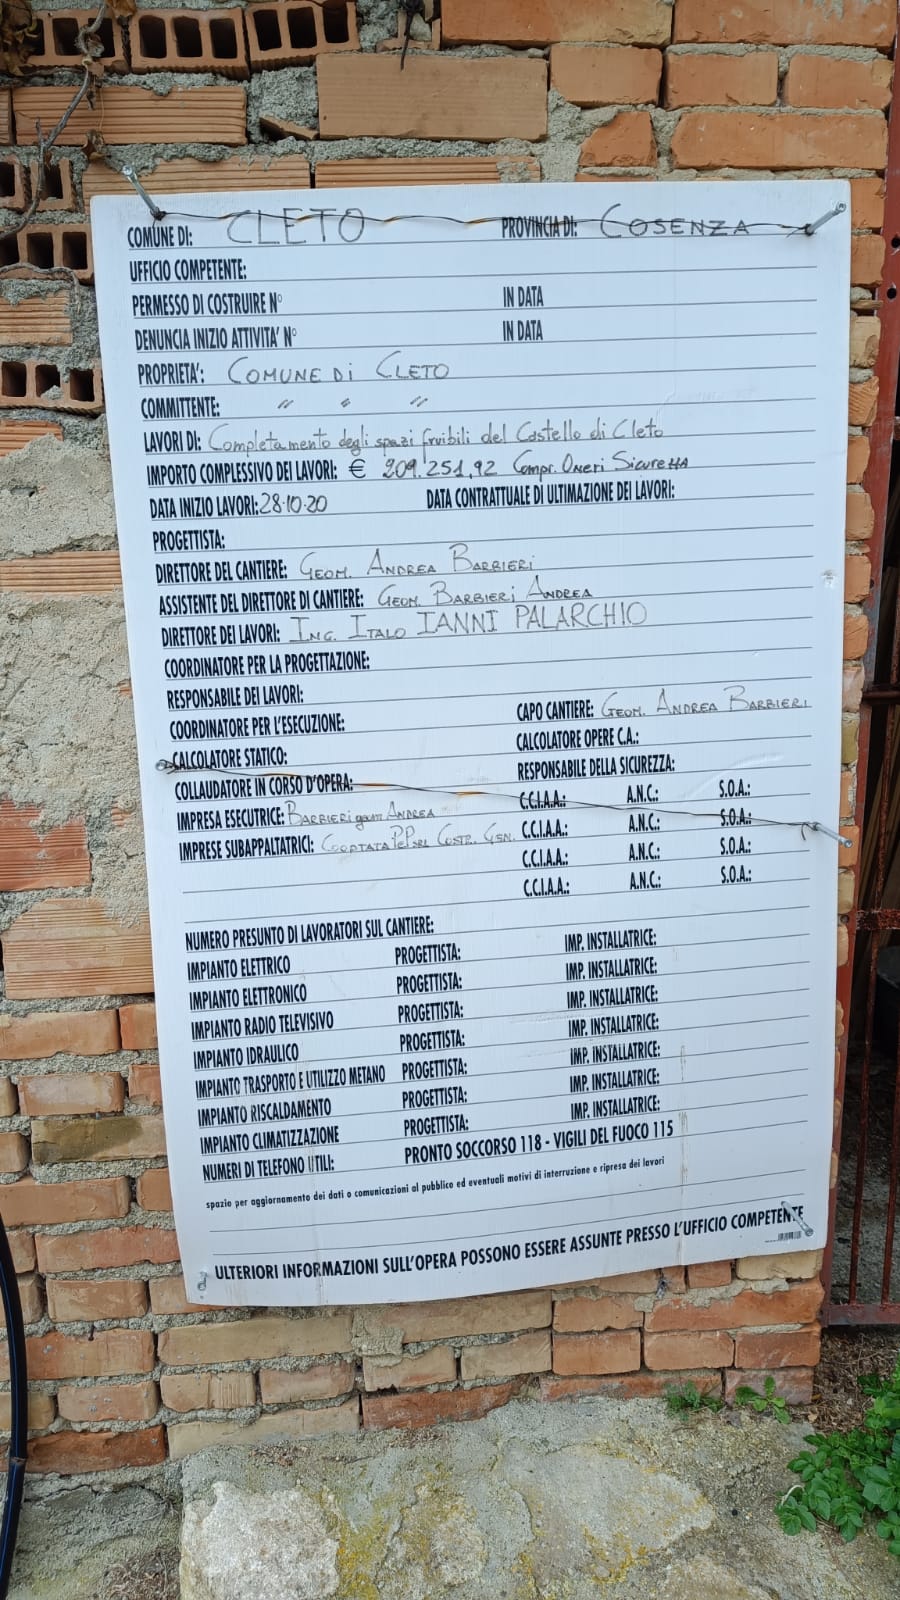 COMUNE DI: CLETO PROVINCIA DI: COSENZA
UFFICIO COMPETENTE:
PERMESSO DI COSTRUIRE N° IN DATA
DENUNCIA INIZIO ATTIVITA' N° IN DATA
PROPRIETA': COMUNE DI CLETO
COMMITTENTE: " " "
LAVORI DI: Completamento degli spazi fruibili del Castello di Cleto
IMPORTO COMPLESSIVO DEI LAVORI: € 209.251,92 Compr. Oneri Sicurezza
DATA INIZIO LAVORI: 28.10.20 DATA CONTRATTUALE DI ULTIMAZIONE DEI LAVORI:
PROGETTISTA:
DIRETTORE DEL CANTIERE: GEOM. ANDREA BARBIERI
ASSISTENTE DEL DIRETTORE DI CANTIERE: GEOM. BARBIERI ANDREA
DIRETTORE DEI LAVORI: ING. ITALO IANNI PALARCHIO
COORDINATORE PER LA PROGETTAZIONE:
RESPONSABILE DEI LAVORI:
COORDINATORE PER L'ESECUZIONE: CAPO CANTIERE: GEOM. ANDREA BARBIERI
CALCOLATORE STATICO: CALCOLATORE OPERE C.A.:
COLLAUDATORE IN CORSO D'OPERA: RESPONSABILE DELLA SICUREZZA:
IMPRESA ESECUTRICE: BARBIERI geom ANDREA C.C.I.A.A.: A.N.C.: S.O.A.:
IMPRESE SUBAPPALTATRICI: COOPTATA PEP SRL COSTR. GEN. C.C.I.A.A.: A.N.C.: S.O.A.:
C.C.I.A.A.: A.N.C.: S.O.A.:
C.C.I.A.A.: A.N.C.: S.O.A.:
NUMERO PRESUNTO DI LAVORATORI SUL CANTIERE:
IMPIANTO ELETTRICO PROGETTISTA: IMP. INSTALLATRICE:
IMPIANTO ELETTRONICO PROGETTISTA: IMP. INSTALLATRICE:
IMPIANTO RADIO TELEVISIVO PROGETTISTA: IMP. INSTALLATRICE:
IMPIANTO IDRAULICO PROGETTISTA: IMP. INSTALLATRICE:
IMPIANTO TRASPORTO E UTILIZZO METANO PROGETTISTA: IMP. INSTALLATRICE:
IMPIANTO RISCALDAMENTO PROGETTISTA: IMP. INSTALLATRICE:
IMPIANTO CLIMATIZZAZIONE PROGETTISTA: IMP. INSTALLATRICE:
NUMERI DI TELEFONO UTILI: PRONTO SOCCORSO 118 - VIGILI DEL FUOCO 115
spazio per aggiornamento dei dati o comunicazioni al pubblico ed eventuali motivi di interruzione e ripresa dei lavori
ULTERIORI INFORMAZIONI SULL'OPERA POSSONO ESSERE ASSUNTE PRESSO L'UFFICIO COMPETENTE